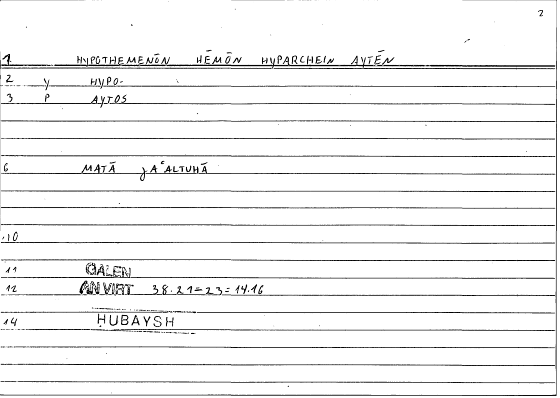 2
1 HYPOTHEMENŌN HĒMŌN HYPARCHEIN AYTĒN
2 y HYPO-
3 P AYTOS
6 MATĀ JAʿALTUHĀ
10
11 GALEN
12 AN VIRT 38.21-23 = 14.16
14 ḤUBAYSH